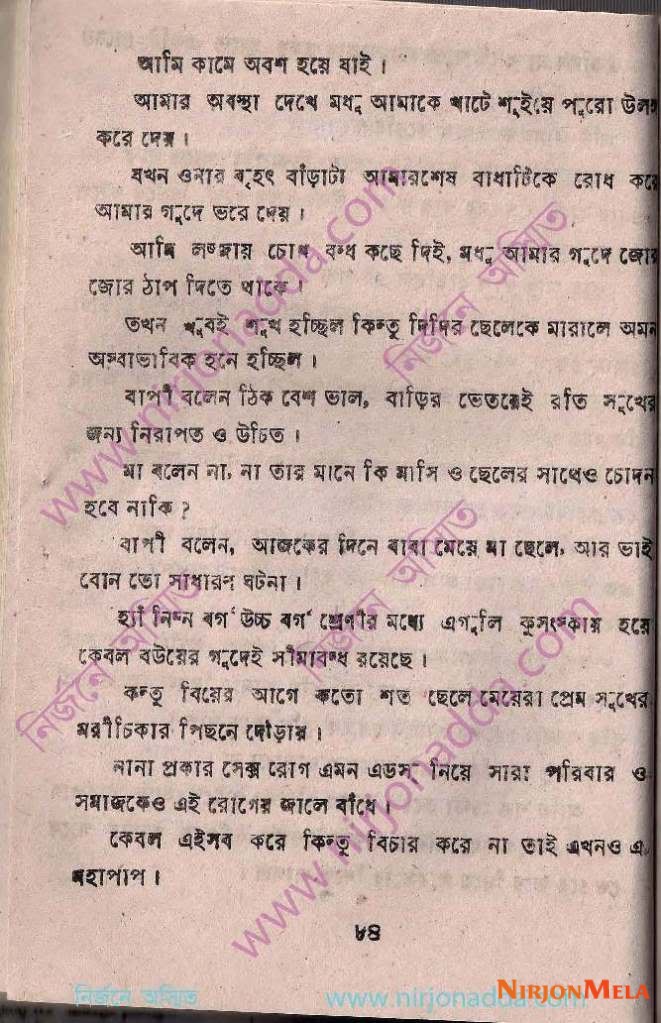 আমি কামে অবশ হয়ে যাই।
আমার অবস্থা দেখে মধু আমাকে খাটে শুইয়ে পুরো উলঙ্গ
করে দেয়।
যখন ওনার বৃহৎ বাঁড়াটা আমারশেষ বাধাটিকে রোধ করে
আমার গুদে ভরে দেয়।
আমি লজ্জায় চোখ বন্ধ কছে দিই, মধু আমার গুদে জোর
জোর ঠাপ দিতে থাকে।
তখন খুবই শুখ হচ্ছিল কিন্তু দিদির ছেলেকে মারালে অমন
অস্বাভাবিক হনে হচ্ছিল।
বাপী বলেন ঠিক বেশ ভাল, বাড়ির ভেতরেই রতি সুখের
জন্য নিরাপত ও উচিত।
মা বলেন না, না তার মানে কি মাসি ও ছেলের সাথেও চোদন
হবে নাকি?
বাপী বলেন, আজকের দিনে বাবা মেয়ে মা ছেলে, আর ভাই
বোন তো সাধারণ ঘটনা।
হ্যাঁ নিম্ন বর্গ উচ্চ বর্গ শ্রেণীর মধ্যে এগুলি কুসংস্কায় হয়ে
কেবল বউয়ের গুদেই সীমাবন্ধ রয়েছে।
কন্তু বিয়ের আগে কতো শত ছেলে মেয়েরা প্রেম সুখের
মরীচিকার পিছনে দৌড়ায়।
নানা প্রকার সেক্স রোগ এমন এডস্ নিয়ে সারা পরিবার ও
সমাজকেও এই রোগের জালে বাঁধে।
কেবল এইসব করে কিন্তু বিচার করে না তাই এখনও এ
মহাপাপ।
৮৪
www.nirjonadda.com
নির্জনে অস্মিত
নির্জনে অস্মিত
নির্জনে অস্মিত
www.nirjonadda.com
নির্জনে অস্মিত www.nirjonadda.com
NIRJONMELA